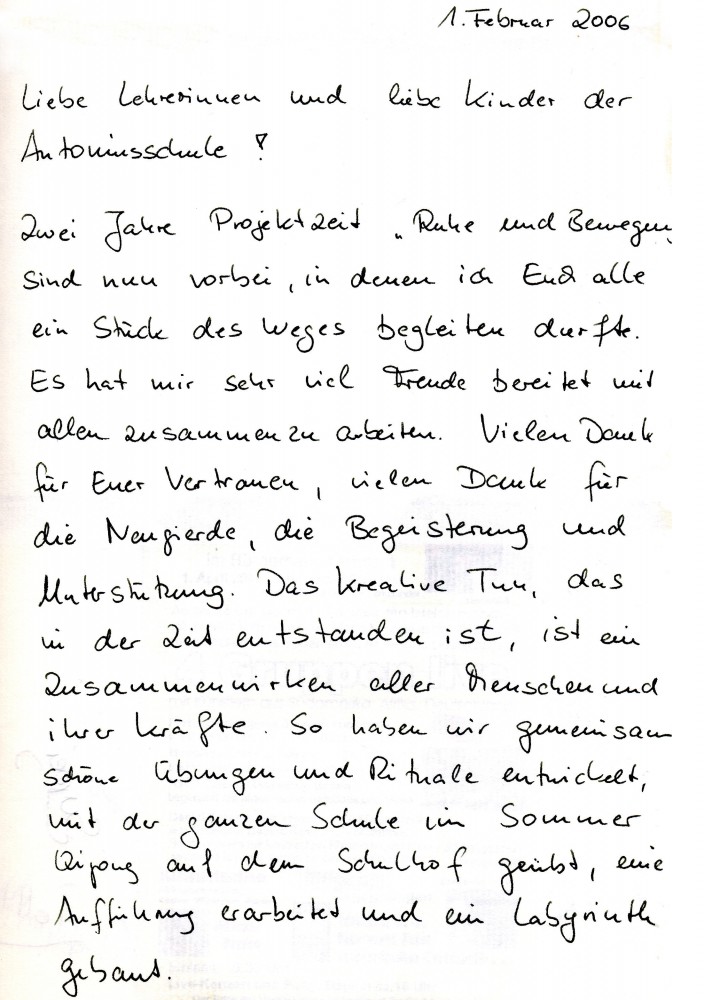 1. Februar 2006
Liebe Lehrerinnen und liebe Kinder der
Antoniusschule !
Zwei Jahre Projektzeit „Ruhe und Bewegen
sind nun vorbei, in denen ich Euch alle
ein Stück des Weges begleiten durfte.
Es hat mir sehr viel Freude bereitet mit
allen zusammenzu arbeiten. Vielen Dank
für Euer Vertrauen, vielen Dank für
die Neugierde, die Begeisterung und
Unterstützung. Das kreative Tun, das
in der Zeit entstanden ist, ist ein
Zusammenwirken aller Menschen und
ihrer Kräfte. So haben wir gemeinsam
schöne Übungen und Rituale entwickelt,
mit der ganzen Schule im Sommer
Qigong auf dem Schulhof geübt, eine
Aufführung erarbeitet und ein Labyrinth
gebaut.